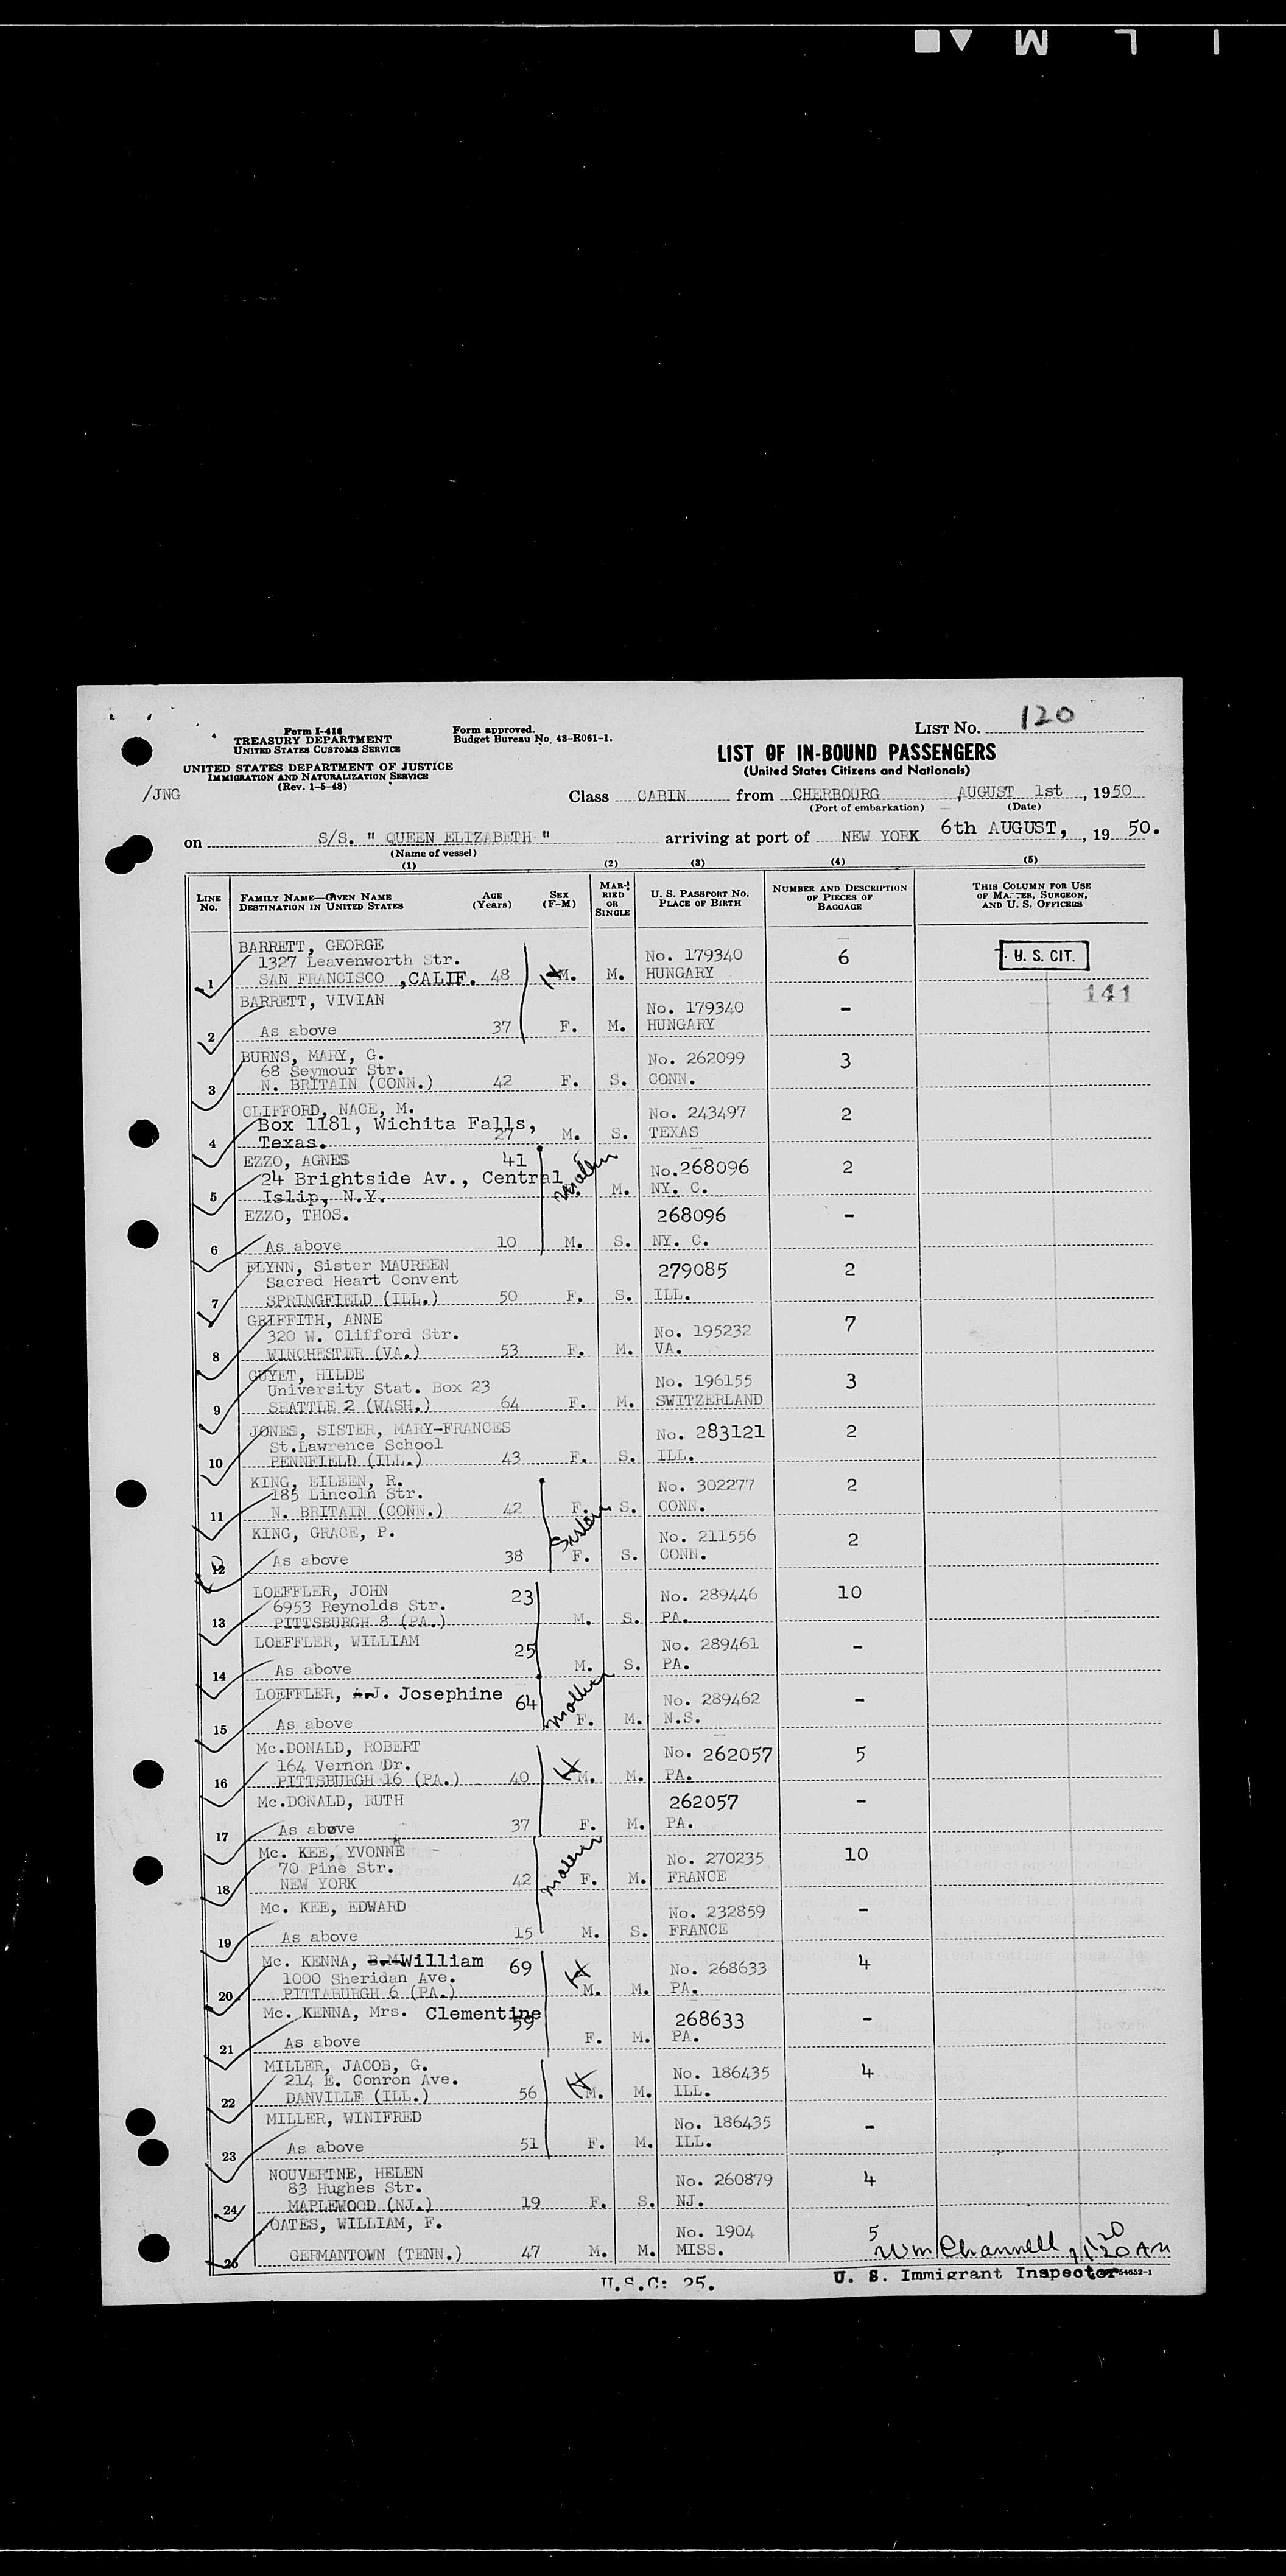 LIST No. 120
Form I-416
TREASURY DEPARTMENT
UNITED STATES CUSTOMS SERVICE
Form approved.
Budget Bureau No. 43-R061-1.
UNITED STATES DEPARTMENT OF JUSTICE
IMMIGRATION AND NATURALIZATION SERVICE
(Rev. 1-5-48)
/JNG
LIST OF IN-BOUND PASSENGERS
(United States Citizens and Nationals)
Class CABIN from CHERBOURG AUGUST 1st, 1950
(Port of embarkation) (Date)
on S/S. " QUEEN ELIZABETH " arriving at port of NEW YORK 6th AUGUST, , 19 50.
(Name of vessel)
(1) (2) (3) (4) (5)
LINE No. FAMILY NAME—GIVEN NAME DESTINATION IN UNITED STATES AGE (Years) SEX (F-M) MARRIED OR SINGLE U. S. PASSPORT No. PLACE OF BIRTH NUMBER AND DESCRIPTION OF PIECES OF BAGGAGE THIS COLUMN FOR USE OF MASTER, SURGEON, AND U. S. OFFICERS
BARRETT, GEORGE
1327 Leavenworth Str. No. 179340 6 U. S. CIT.
1 SAN FRANCISCO ,CALIF. 48 M. M. HUNGARY
141
BARRETT, VIVIAN No. 179340 -
2 As above 37 F. M. HUNGARY
BURNS, MARY, G. No. 262099 3
68 Seymour Str.
3 N. BRITAIN (CONN.) 42 F. S. CONN.
CLIFFORD, NACE, M. No. 243497 2
Box 1181, Wichita Falls,
4 Texas. 27 M. S. TEXAS
EZZO, AGNES 41 No.268096 2
24 Brightside Av., Central
5 Islip, N.Y. Mother M. NY. C.
EZZO, THOS. 268096 -
6 As above 10 M. S. NY. C.
FLYNN, Sister MAUREEN 279085 2
Sacred Heart Convent
7 SPRINGFIELD (ILL.) 50 F. S. ILL.
GRIFFITH, ANNE No. 195232 7
320 W. Clifford Str.
8 WINCHESTER (VA.) 53 F. M. VA.
GUYET, HILDE No. 196155 3
University Stat. Box 23
9 SEATTLE 2 (WASH.) 64 F. M. SWITZERLAND
JONES, SISTER, MARY-FRANCES No. 283121 2
St.Lawrence School
10 PENNFIELD (ILL.) 43 F. S. ILL.
KING, EILEEN, R. No. 302277 2
185 Lincoln Str.
11 N. BRITAIN (CONN.) 42 F. S. CONN.
Sisters
KING, GRACE, P. No. 211556 2
12 As above 38 F. S. CONN.
LOEFFLER, JOHN 23 No. 289446 10
6953 Reynolds Str.
13 PITTSBURGH 8 (PA.) M. S. PA.
LOEFFLER, WILLIAM 25 No. 289461 -
14 As above M. S. PA.
LOEFFLER, A.J. Josephine 64 No. 289462 -
15 As above Mother F. M. N.S.
Mc.DONALD, ROBERT No. 262057 5
164 Vernon Dr.
16 PITTSBURGH 16 (PA.) 40 H M. M. PA.
Mc.DONALD, RUTH 262057 -
17 As above 37 F. M. PA.
Mc. KEE, YVONNE No. 270235 10
70 Pine Str.
18 NEW YORK 42 Mother F. M. FRANCE
Mc. KEE, EDWARD No. 232859 -
19 As above 15 M. S. FRANCE
Mc. KENNA, B.M William 69 No. 268633 4
1000 Sheridan Ave.
20 PITTABURGH 6 (PA.) H M. M. PA.
Mc. KENNA, Mrs. Clementine 59 268633 -
21 As above F. M. PA.
MILLER, JACOB, G. No. 186435 4
214 E. Conron Ave.
22 DANVILLE (ILL.) 56 H M. M. ILL.
MILLER, WINIFRED No. 186435 -
23 As above 51 F. M. ILL.
NOUVERTNE, HELEN No. 260879 4
83 Hughes Str.
24 MAPLEWOOD (NJ.) 19 F. S. NJ.
OATES, WILLIAM, F. No. 1904 5
GERMANTOWN (TENN.) 47 M. M. MISS.
Wm Channell
U.S.C: 25. U. S. Immigrant Inspector